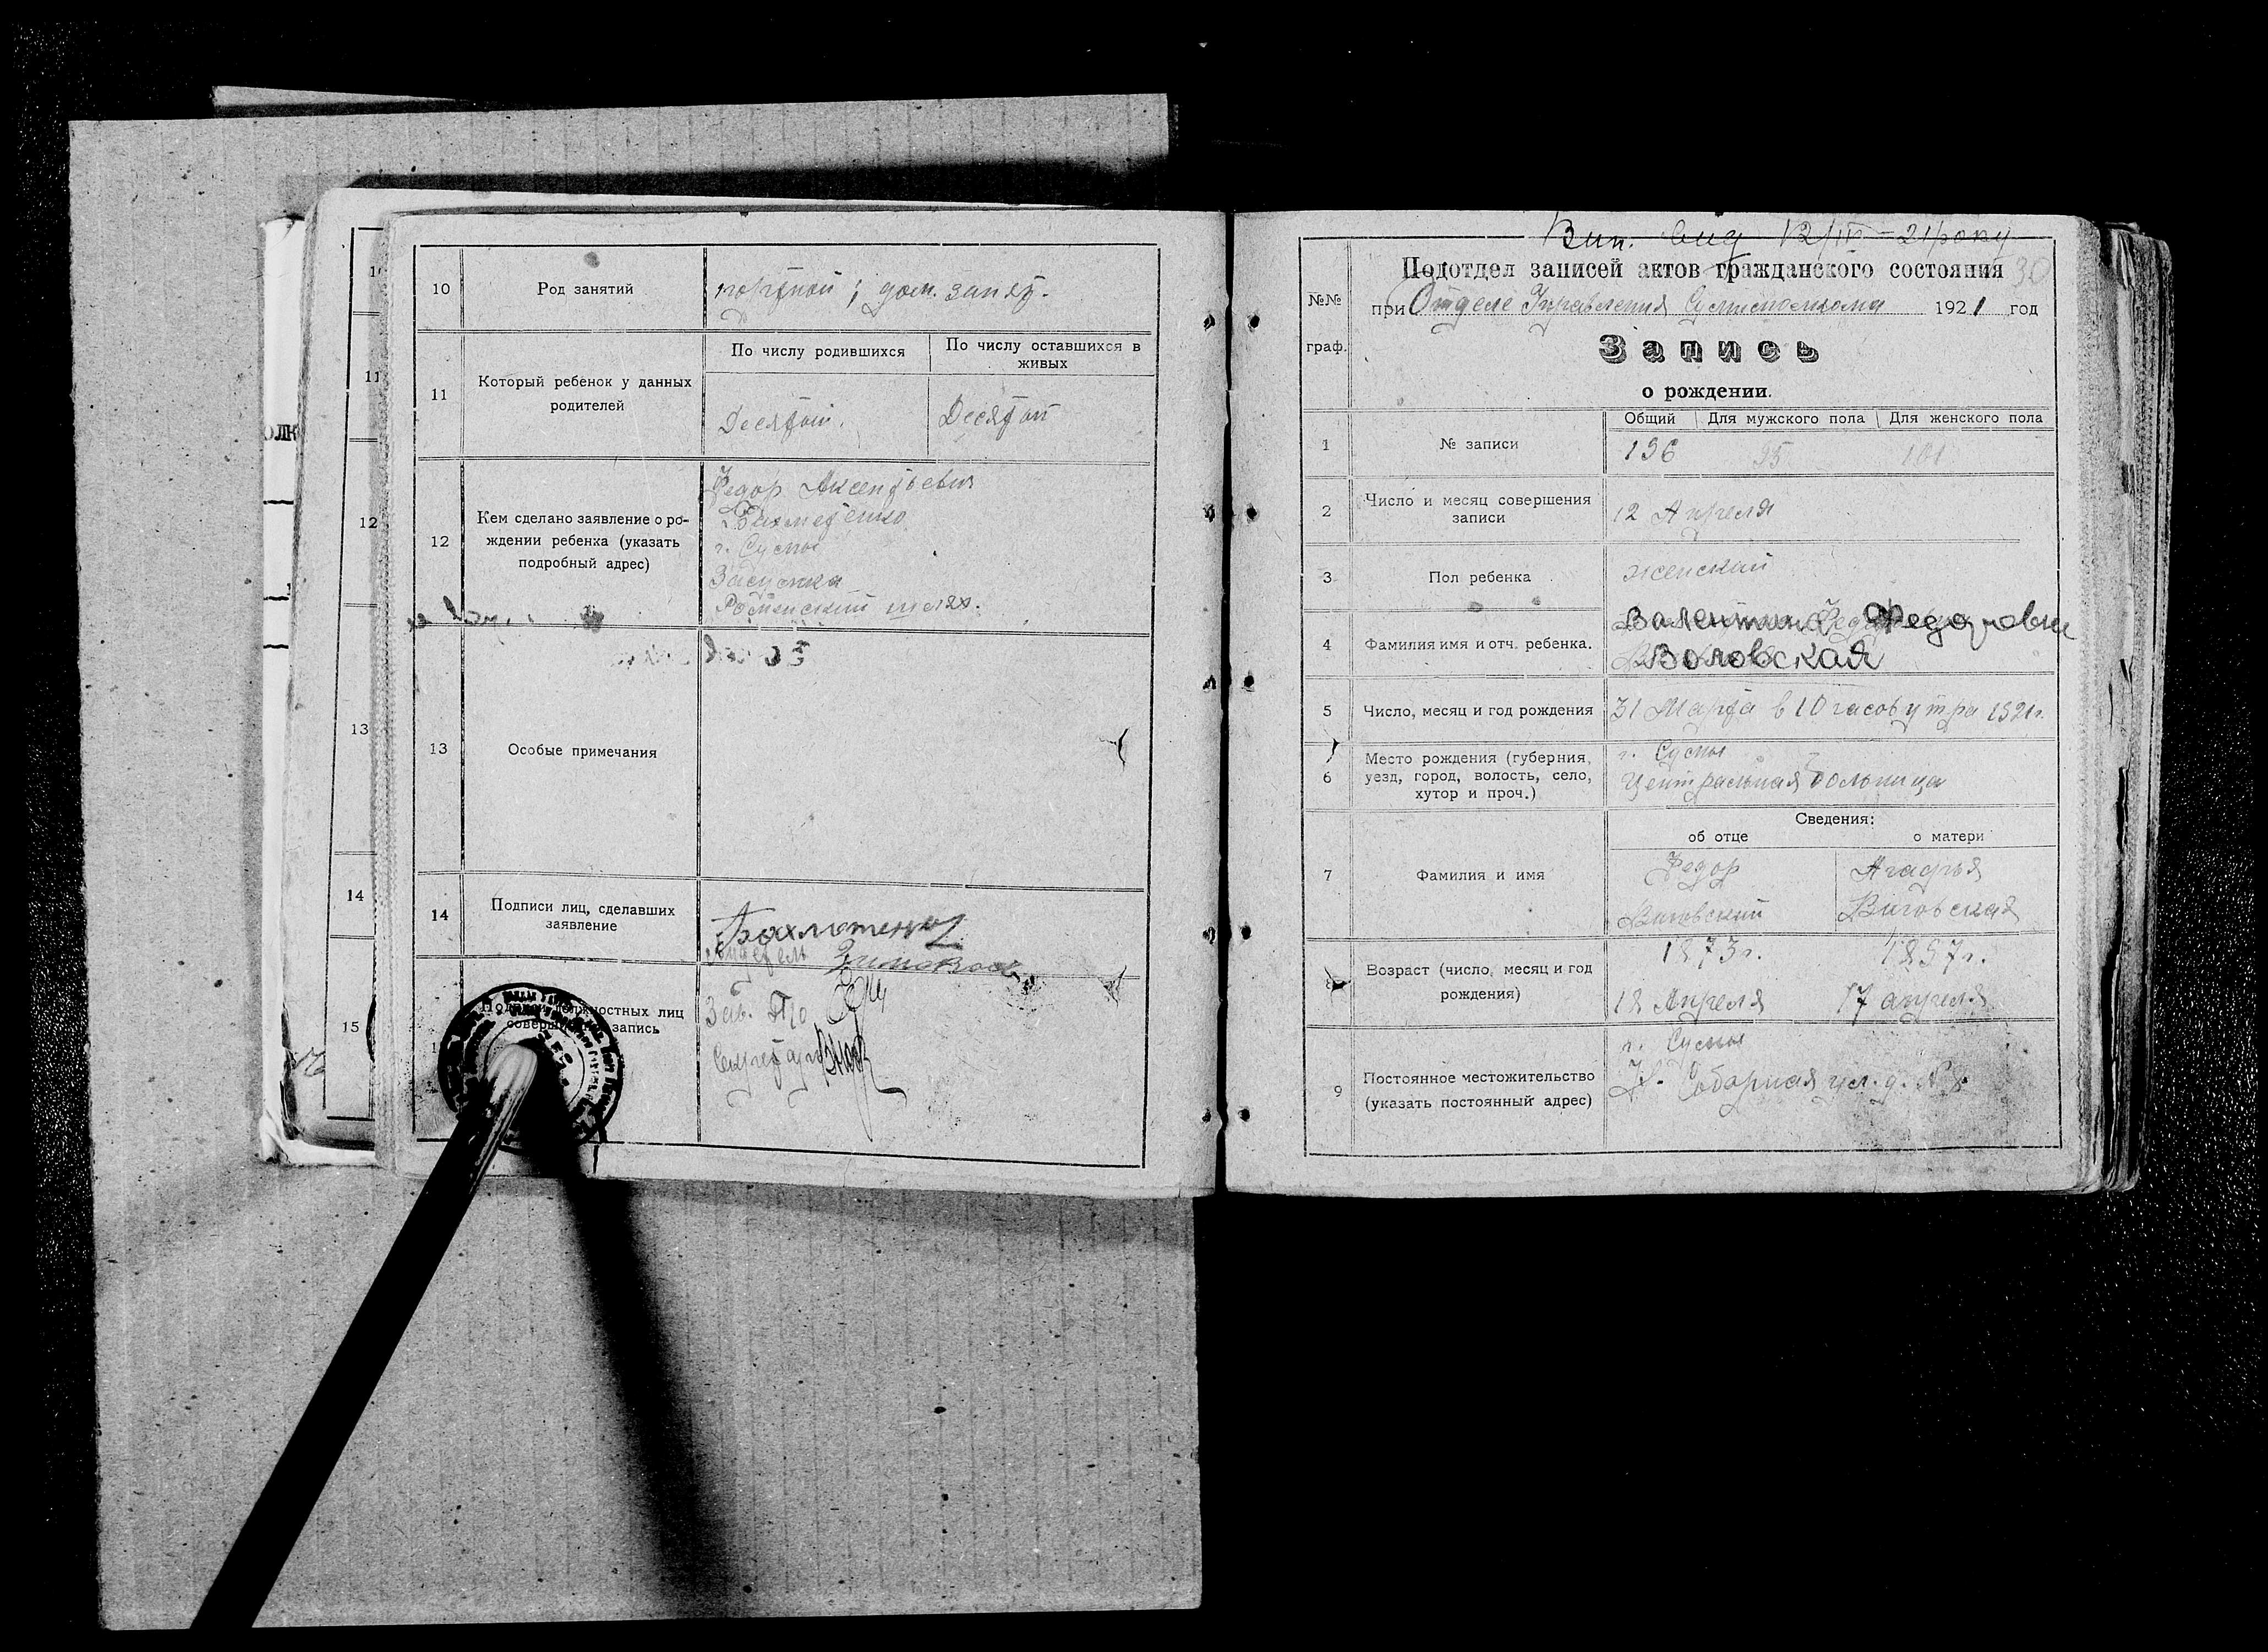 10 Род занятий портной; дом. занят.
11 Который ребенок у данных родителей
По числу родившихся По числу оставшихся в живых
Десятый. Десятый
12 Кем сделано заявление о рождении ребенка (указать подробный адрес)
Федор Аксентьевич
г. Сумы
Засумка
Роменский шлях.
13 Особые примечания
14 Подписи лиц, сделавших заявление
15 Подписи должностных лиц совершивших запись
Зав. П/о
Секретарь
10
11
12
13
14
15
Вип. вид 12/IV-21 року
30
№№ граф.
Подотдел записей актов гражданского состояния
при Отделе Управления 1921 год
Запись
о рождении.
Общий Для мужского пола Для женского пола
1 № записи 196 95 101
2 Число и месяц совершения записи 12 Апреля
3 Пол ребенка женский
4 Фамилия имя и отч. ребенка. Валентина Федоровна
5 Число, месяц и год рождения 31 Марта в 10 часов утра 1921г.
6 Место рождения (губерния, уезд, город, волость, село, хутор и проч.)
г. Сумы
Центральная больница
Сведения:
об отце о матери
7 Фамилия и имя
Федор
Возраст (число, месяц и год рождения)
1873г.
18 Апреля 17 апреля
9 Постоянное местожительство (указать постоянный адрес)
г. Сумы
Соборная ул. д. №